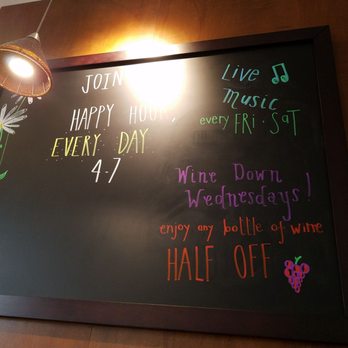 JOIN
HAPPY HOUR,
EVERY DAY
4-7
Live
Music
every FRI · SAT
Wine Down
Wednesdays!
enjoy any bottle of wine
HALF OFF